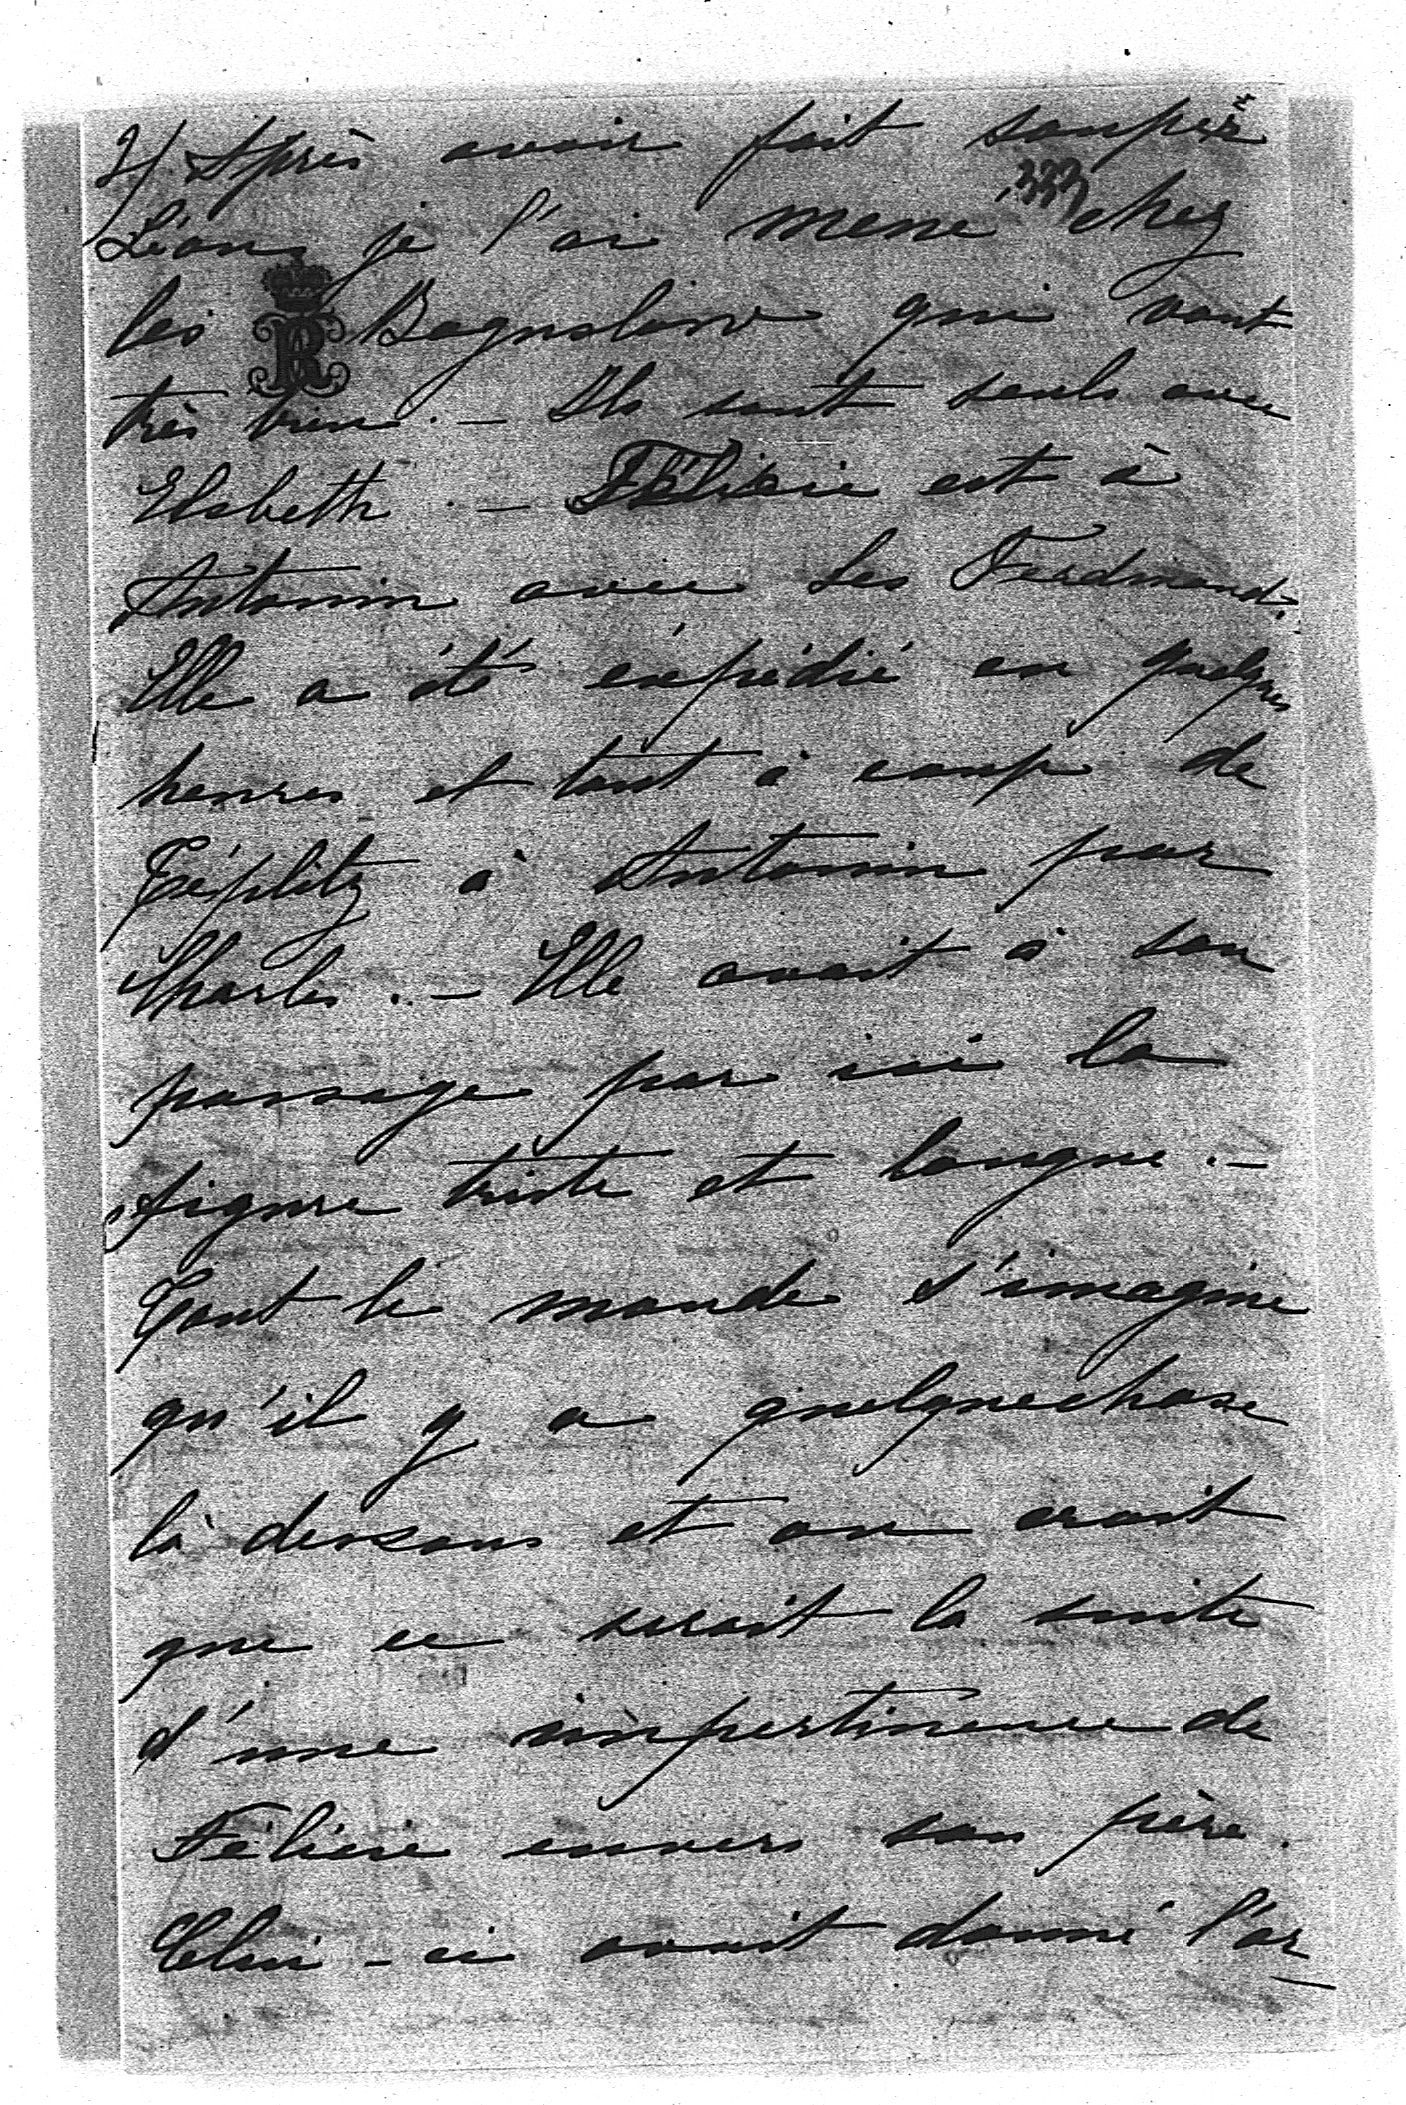 2/. Après avoir fait souper
333
Léon, je l'ai mené chez
les Boguslaw qui vont
très bien. — Ils sont seuls avec
Elsbeth. — Félicie est à
Antonin avec les Ferdinand.
Elle a été éxpédié en quelques
heures et tout à coup de
Téplitz à Antonin par
Charles. — Elle avait à son
passage par ici la
figure triste et longue. —
Tout le monde s'imagine
qu'il y a quelquechose
là dessous et on croit
que ce serait la suite
d'une impertinence de
Félicie envers son père.
Celui-ci avait donné l'or